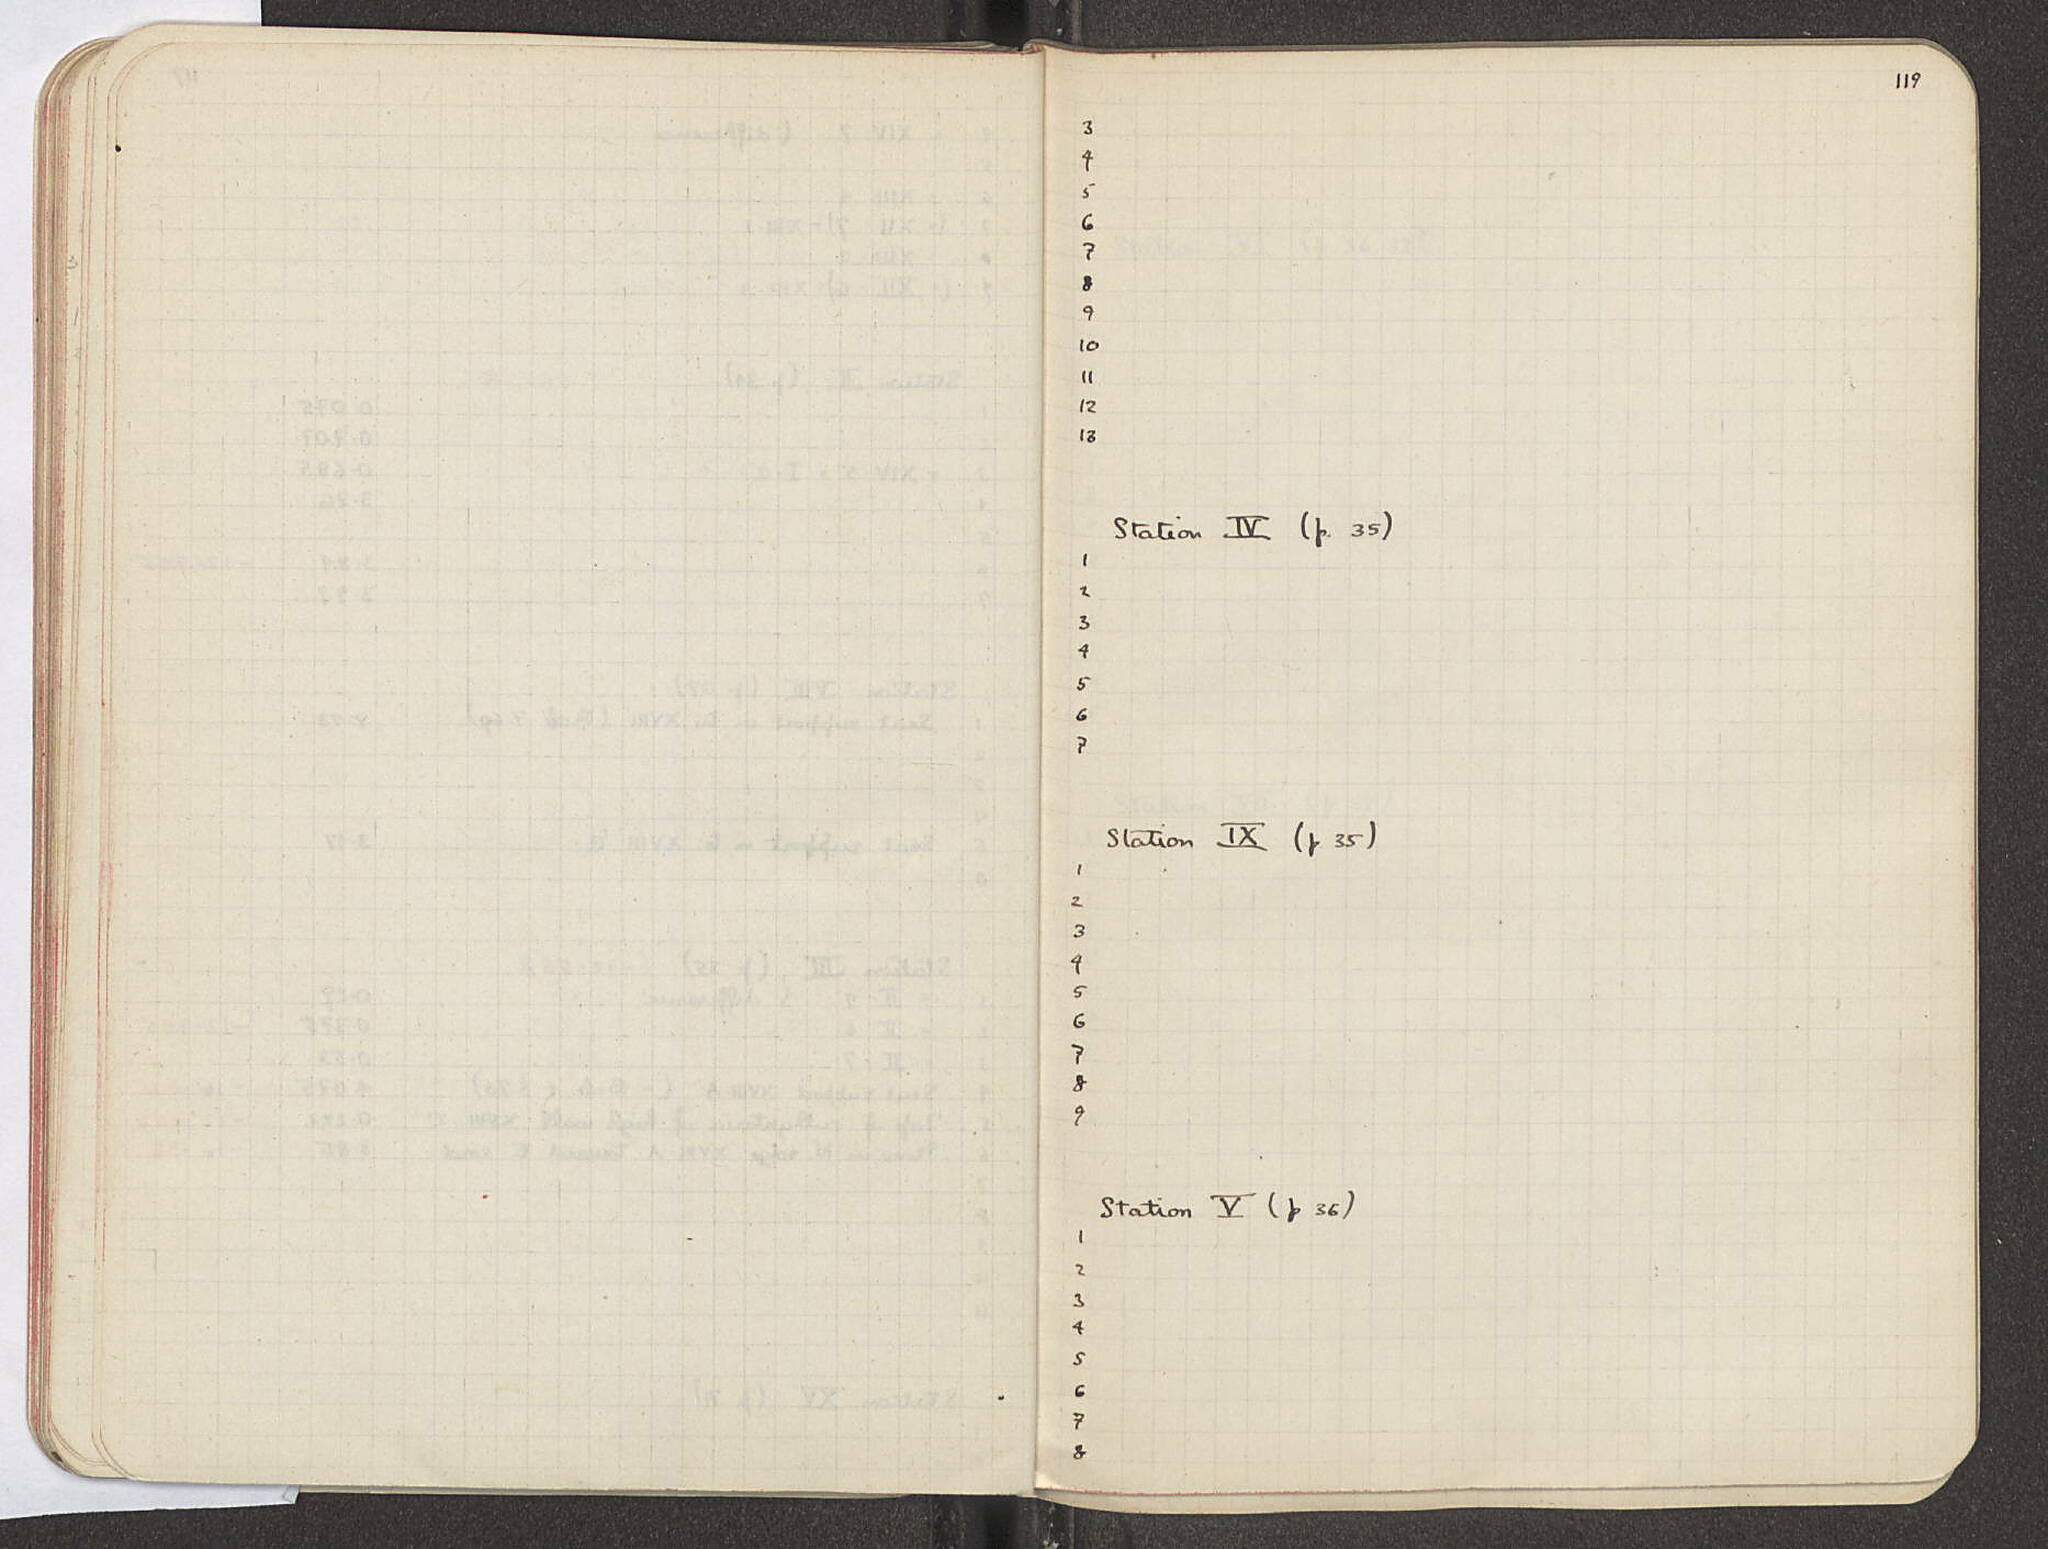 119
3
4
5
6
7
8
9
10
11
12
13
Station IV (p. 35)
1
2
3
4
5
6
7
Station IX (p 35)
1
2
3
4
5
6
7
8
9
Station V (p 36)
1
2
3
4
5
6
7
8